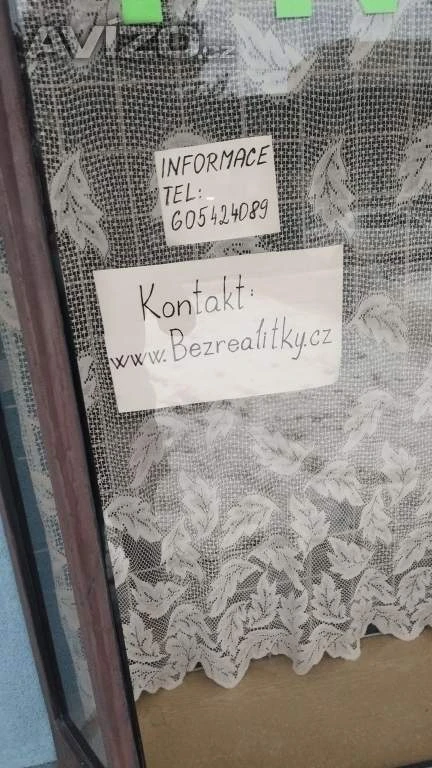 AVÍZO.cz
INFORMACE
TEL:
605424089
Kontakt:
www.Bezrealitky.cz